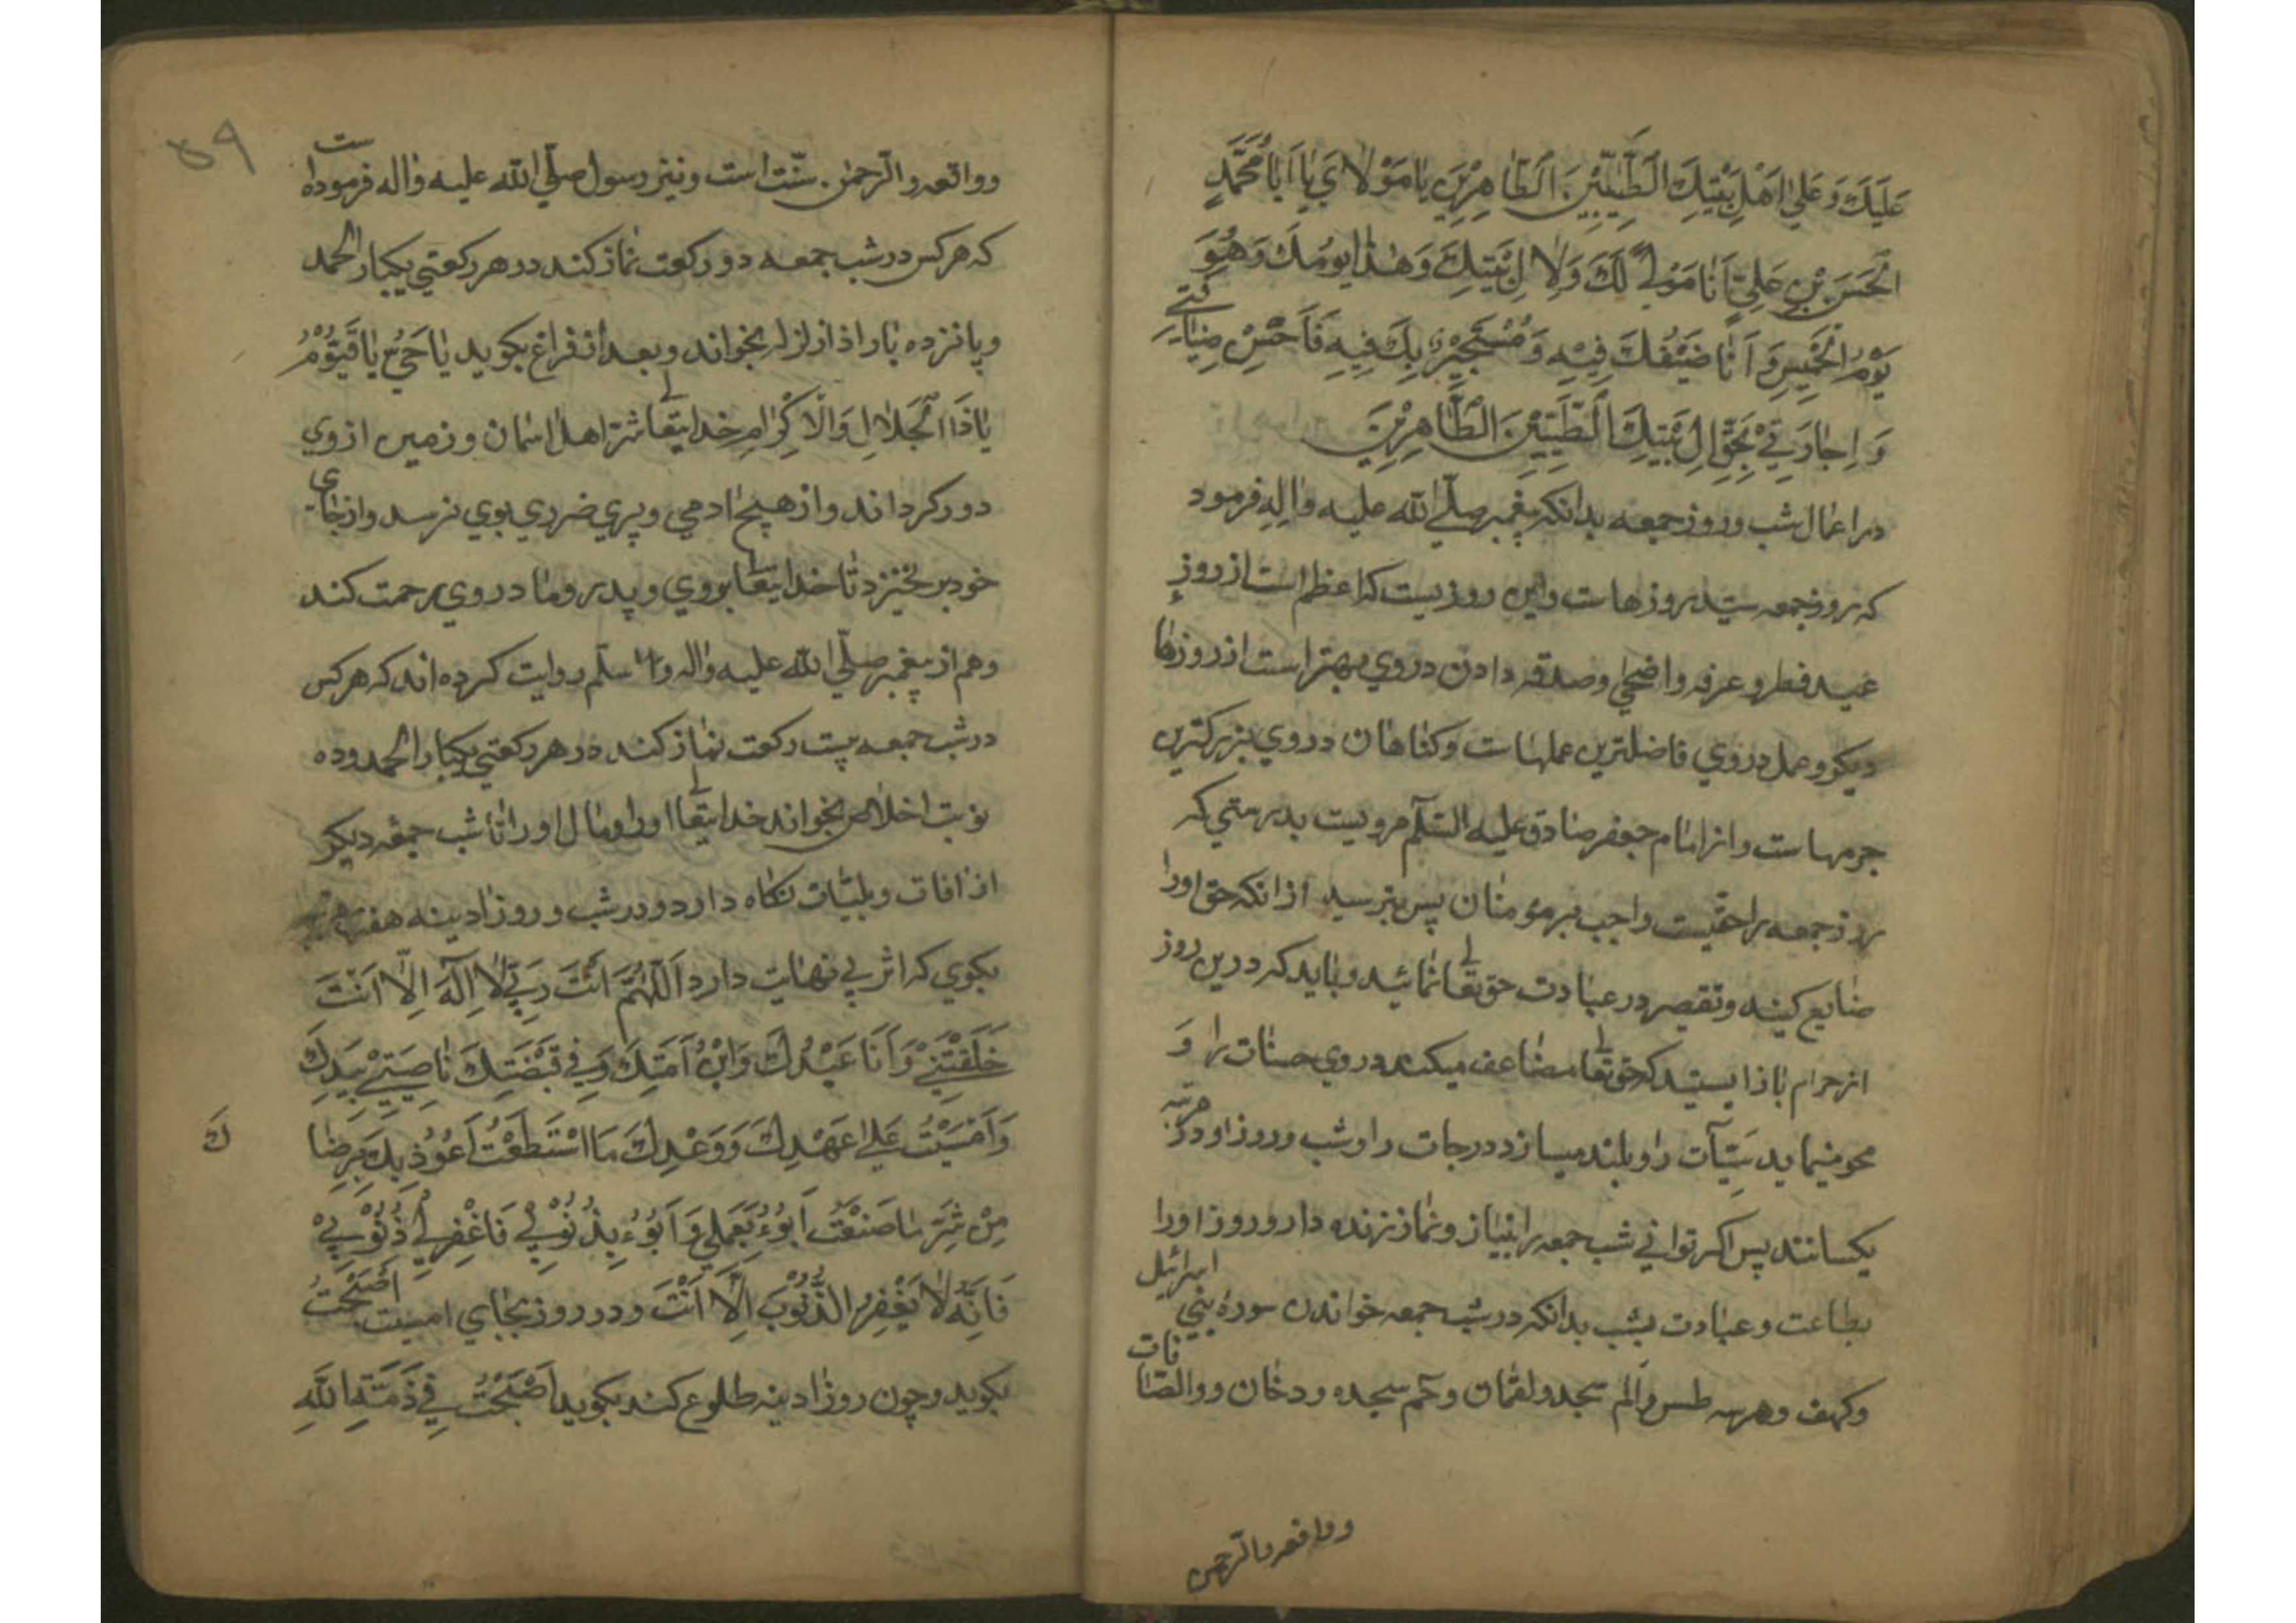 عَلَيكَ وَ عَلي اَهْلِ بَيْتِكَ الطَّيِّبِيْنَ الطّاهِرِيْنَ يا مَوْلايَ يا اَبا مُحَمَّدٍ
الْحَسَنَ بْنَ عَلِيٍّ اَنَا مَوْلًي لَكَ وَ لِالِ بَيْتِكَ وَ هٰذا يومُكَ وَ هُوَ
يَوْمُ الْخَمِيسِ وَ اَنَا ضَيْفُكَ فِيْهِ وَ مُسْتَجِيْرٌ بِكَ فِيهِ فَاَحْسِنْ ضِيافَتي
وَ اِجارَتِيْ بِحَقِّ الِ بَيْتِكَ الطَّيِّبِيْنَ الطّاهِرِيْنَ
در اعمال شب و روز جمعه بدانكه پيغمبر صلّي الله عليه واله فرمود
كه روز جمعه سيّد روزهاست واين روزيست كه اعظم است از روز
عيد فطر و عرفه و اضحي وصدقه دادن دروي بهتر است از روزها
ديكر و عمل دروي فاضلترين عملهاست وكناهان دروي بزركترين
جرمهاست و از امام جعفر صادق عليه السّلم مرويست بدرستي كه
روز جمعه را حقيست واجب بر مؤمنان پس بترسيد از انكه حق اورا
ضايع كنيد و تقصير در عبادت حق تعالي نمائيد و بايد كه درين روز
از حرام باز ايستيد كه حق تعالي مضاعف ميكند در وي حسنات را و
محو مينمايد سَيِّآت را و بلند ميسازد درجات را و شب و روز او در مرتبه
يكسانند پس اكر تواني شب جمعه را بنياز و نماز زنده دار و روز اورا
بطاعت و عبادت بشب بدانكه در شب جمعه خواندن سوره بني اسرائيل
وكهف و هر سه طس و الم سجده و لقمان و حم سجده و دخان و والصافات
و واقعه و الرّحمن
۵۹
و واقعه و الرّحمن سنّت است و نيز رسول صلّي الله عليه واله فرموده است
كه هركس در شب جمعه دو ركعت نماز كند در هر ركعتي يكبار الحمد
و پانزده بار اذا زلزله بخواند و بعد از فراغ بكويد يا حَيُّ يا قَيُّوْمُ
يا ذَا الْجَلالِ وَ الْاِكْرامِ خدايتعالي شرّ اهل اسمان و زمين از وي
دور كرداند و از هيچ ادمي و پري ضرري بوي نرسد و از جاي
خود بر نخيزد تا خدايتعالي بروي و پدر و مادر وي رحمت كند
وهم از پيغمبر صلّي الله عليه واله و سلّم روايت كرده اند كه هركس
در شب جمعه بيست ركعت نماز كند در هر ركعتي يكبار الحمد وده
نوبت اخلاص بخواند خدايتعالي اورا و مال اورا تا شب جمعه ديكر
از افات و بليّات نكاه دارد و در شب و روز ادينه هفت مرتبه
بكوي كه اثر بي نهايت دارد اَللّٰهُمَّ اَنْتَ رَبِّيْ لا اِلٰهَ اِلّا اَنْتَ
خَلَقْتَنِيْ وَ اَنَا عَبْدُكَ وَ ابْنُ اَمَتِكَ وَ فِي قَبْضَتِكَ ناصِيَتِيْ بِيَدِكَ
وَ اَمْسَيْتُ عَلي عَهْدِكَ وَ وَعْدِكَ مَا اسْتَطَعْتُ اَعُوْذُ بِكَ بِرِضا
ك
مِنْ شَرِّ ما صَنَعْتُ اَبُوْءُ بِعَمَلي وَ اَبُوْءُ بِذُنُوْبي فَاغْفِرلي ذُنُوْبيْ
فَاِنَّهُ لا يَغْفِرُ الذُّنُوْبَ اِلّا اَنْتَ و در روز بجاي امسيت اَصْبَحْتُ
بكويد و چون روز ادينه طلوع كند بكويد اَصْبَحْتُ فِي ذِمَّةِ اللّٰهِ